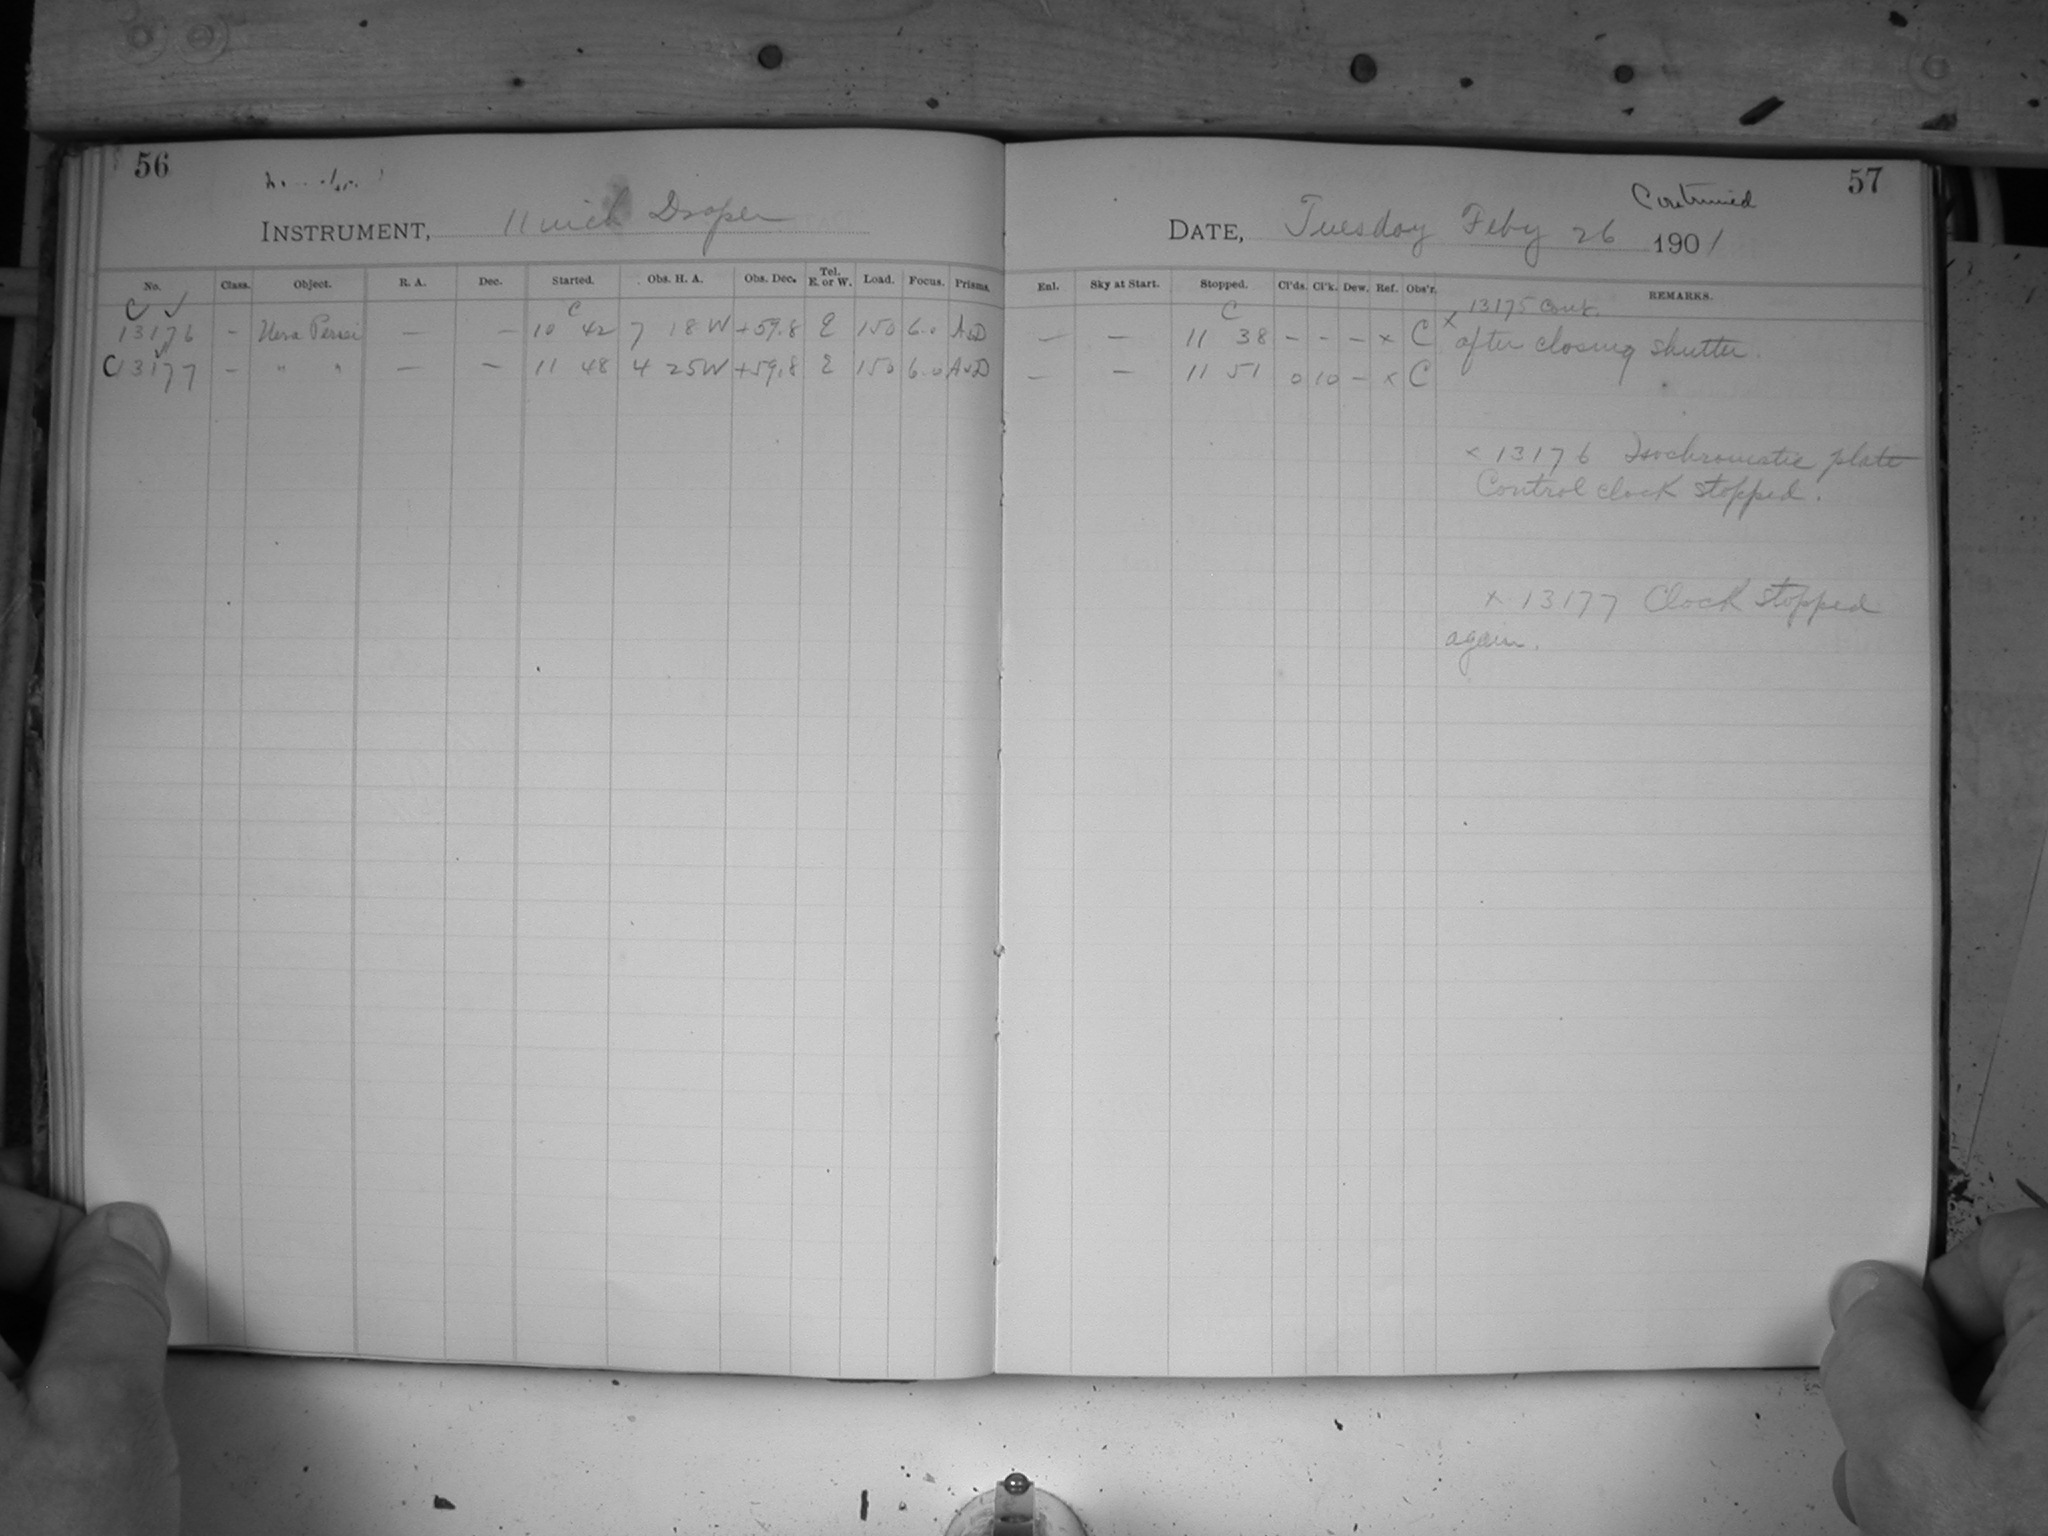 56
INSTRUMENT, 11 inch Draper
No. Class. Object. R. A. Dec. Started. Obs. H. A. Obs. Dec. Tel. E. or W. Load. Focus. Prisms.
C ✓ C
13176 – Nova Persei — — 10 42 7 18 W +59.8 E 150 6.0 A&D
C 13177 – " " — — 11 48 4 25 W +59.8 E 150 6.0 A&D
57
Continued
DATE, Tuesday Feby 26 1901
Enl. Sky at Start. Stopped. Cl'ds. Cl'k. Dew. Ref. Obs'r. REMARKS.
C
— — 11 38 – – – x C
— — 11 51 0 10 – x C
x 13175 Cont.
after closing shutter.
x 13176 Isochromatic plate
Control clock stopped.
x 13177 Clock stopped
again.